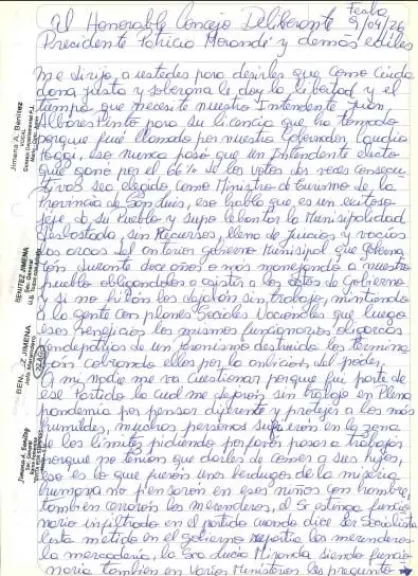 Al Honorable Concejo Deliberante Fecha
Presidente Patricio Morandé y demás ediles 9/04/26
me dirijo a ustedes para desirles que como ciuda
dana justa y soberana le doy la libertad y el
tiempo que necesite nuestro Intendente Juan
Albores Pinto para su licencia que ha tomado
porque fué llamado por nuestro Gobernador Claudio
Poggi, eso nunca pasó que un Intendente electo
que ganó por el 66% de los votos dos veces consecu
tivas sea elegido como Ministro de turismo de la
Provincia de San Luis, eso habla que es un exitoso
jefe de su Pueblo y supo lebantar la Municipalidad
desbastada, sin Recursos, lleno de juicios y vacías
las arcas del anterior gobierno Municipal que goberna
ron durante doce años o más manejando a nuestro
pueblo obligandolos a asistir a los actos de Gobierno
y si no hivan los dejaban sin trabajo, mintiendo
a la gente con planes Sociales Nacionales que luego
esos los mismos funcionarios
de un peronismo destruido los termina
rón cobrando ellos por la anbicion del poder,
A mi nadie me va cuestionar porque fui parte de
ese Partido la cual me dejarón sin trabajo en Plena
pandemia por pensar diferente y protejer a los más
humildes, muchas personas sufrierón en la zona
de los limites pidiendo por favor pasar a trabajar
porque no tenian que darles de comer a sus hijos,
eso es lo que fuerón unos berdugos de la miseria
humana no piensaron en esos niños con hambre,
tambien cerrarón los merenderos, el Sr funcio
nario infiltrado en el partido cuando dice ser Socialista
esta metido en el gobierno repartia los merenderos
la mercaderia, la Sra Lucia Miranda siendo funcio
naria tambien en varios Ministerios les pregunto
Jimena A. Benitez
VOCAL
BENITEZ JIMENA
BENITEZ JIMENA
Jimena A. Benitez